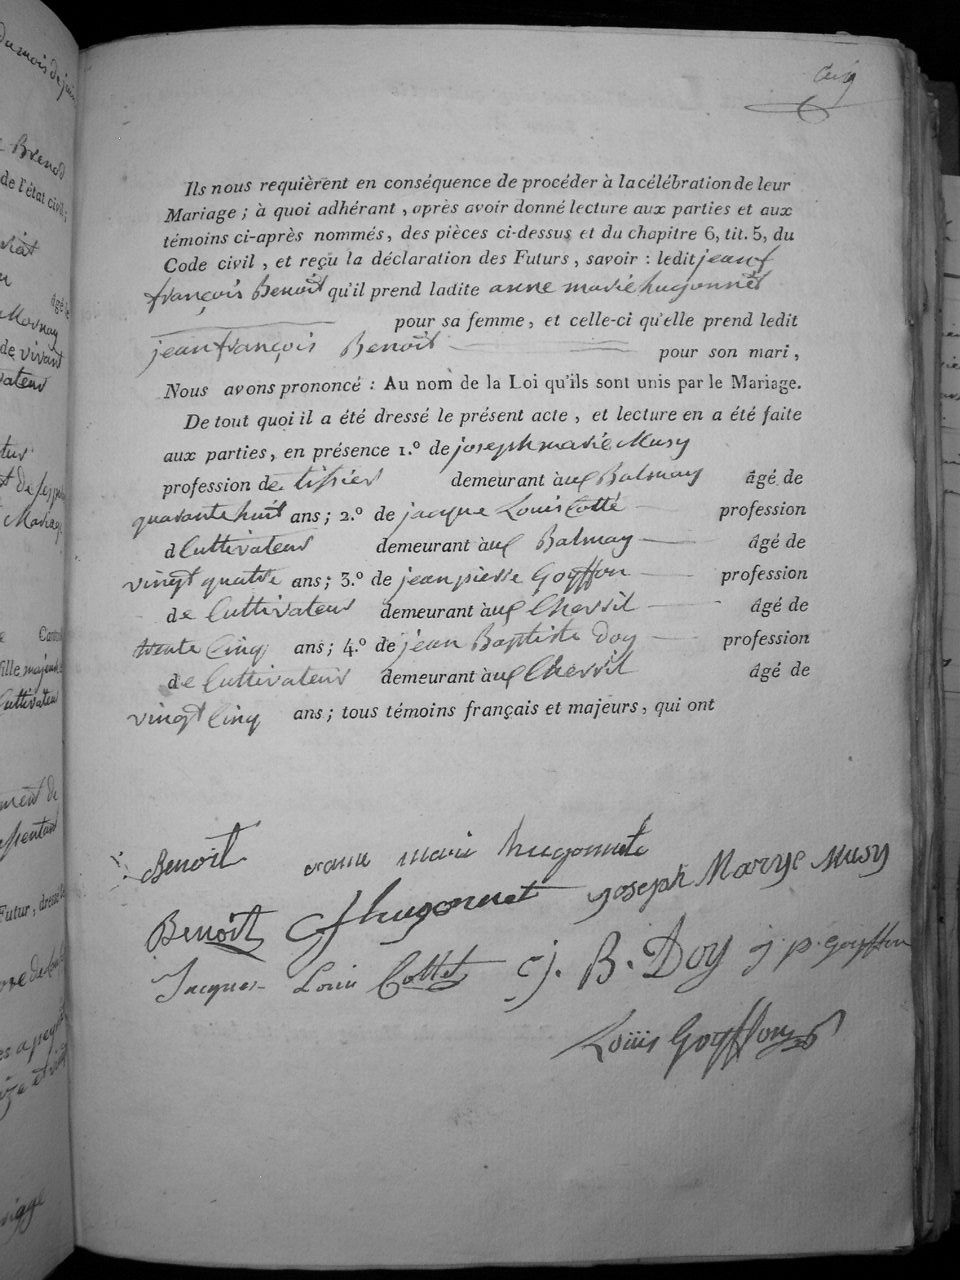 Cinq
Ils nous requièrent en conséquence de procéder à la célébration de leur
Mariage ; à quoi adhérant , après avoir donné lecture aux parties et aux
témoins ci-après nommés, des pièces ci-dessus et du chapitre 6, tit. 5, du
Code civil , et reçu la déclaration des Futurs , savoir : ledit jean
françois Benoit qu'il prend ladite anne marie hugonnet
pour sa femme , et celle-ci qu'elle prend ledit
jean françois Benoit pour son mari ,
Nous avons prononcé : Au nom de la Loi qu'ils sont unis par le Mariage.
De tout quoi il a été dressé le présent acte , et lecture en a été faite
aux parties, en présence 1.º de joseph marie Musy
profession de tissier demeurant à Balmay âgé de
quarante huit ans ; 2.º de jacque Louis Cotte profession
d Cultivateur demeurant à Balmay âgé de
vingt quatre ans ; 3.º de jean pierre Goyffon profession
de Cultivateur demeurant à Chevril âgé de
trente Cinq ans ; 4.º de jean Baptiste Doy profession
de Cultivateur demeurant à Chevril âgé de
vingt Cinq ans ; tous témoins français et majeurs, qui ont
Benoit anne marie hugonnete
Benoit hugonnet Joseph Marye Musy
Jacques Louis Cottet J. B. Doy j p. goyffon
Louis Goyffon